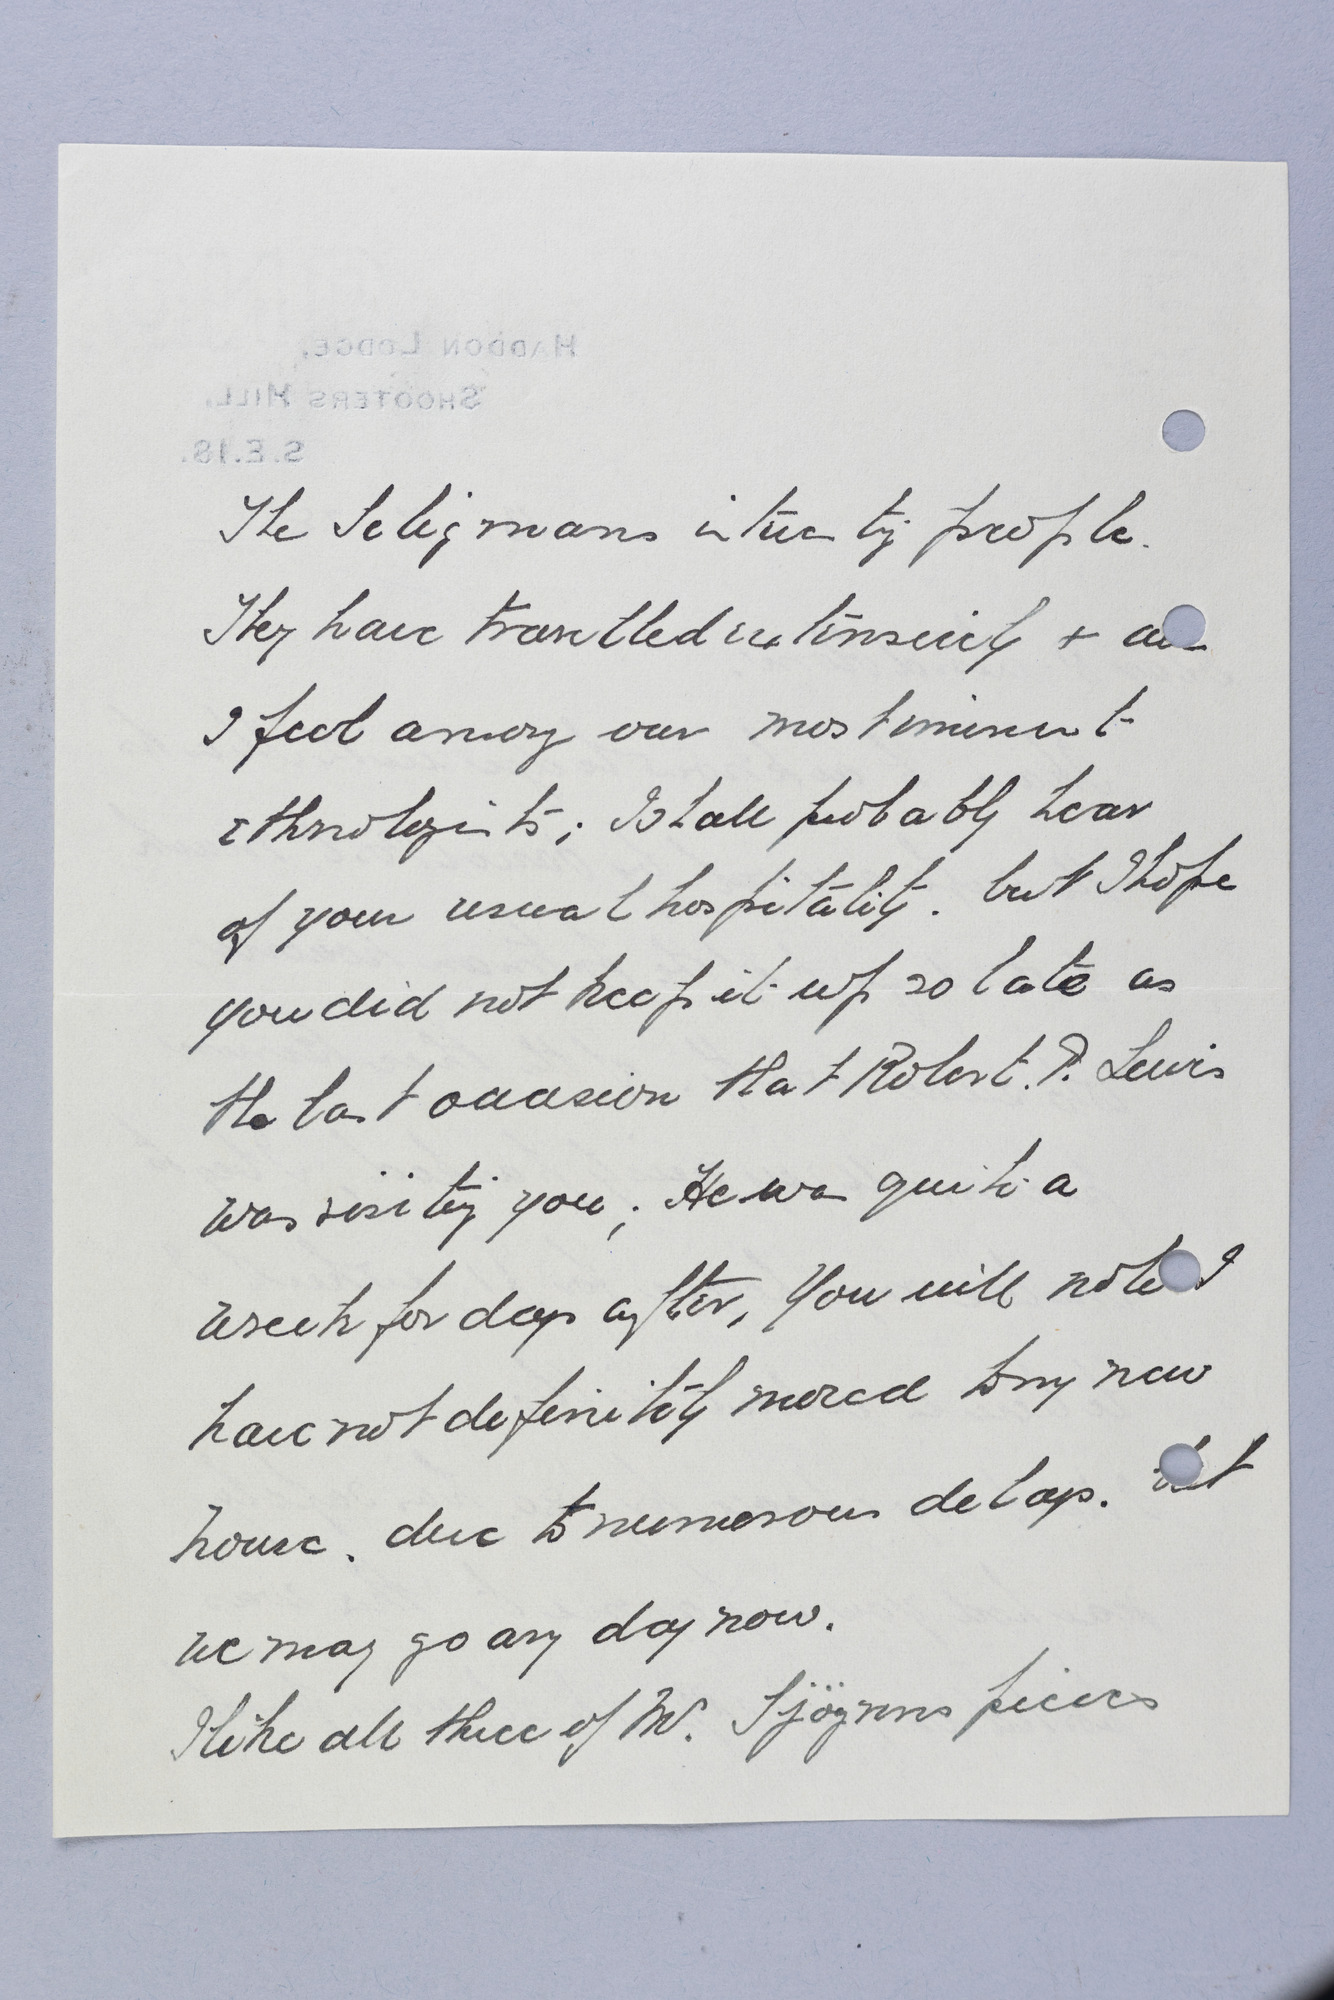 HADDON LODGE,
SHOOTERS HILL.
S.E.18.
The Seligmans interesting people.
They have travelled extensively + are
I feel among our most eminent
ethnologists; I shall probably hear
of your usual hospitality. but I hope
you did not keep it up so late as
the last occasion that Robert. P. Lewis
was visiting you; He was quite a
wreck for days after, You will note I
have not definitely moved to my new
house. due to numerous delays. but
we may go any day now.
I like all three of Mr. Sjögrens pieces